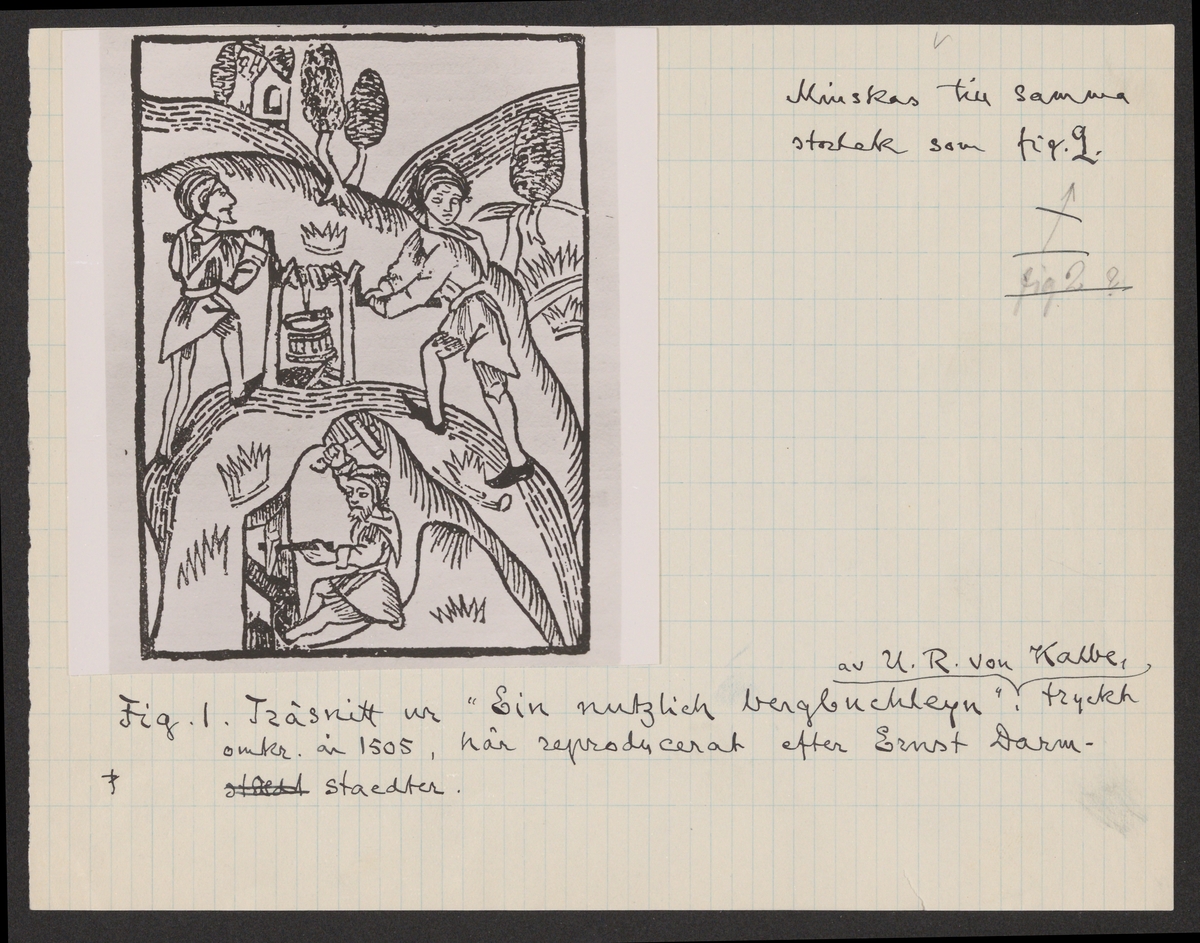 Minskas till samma
storlek som fig. 2.
fig 2 ?
av U. R. von Kalbe,
Fig. 1. Träsnitt ur "Ein nutzlich bergbuchleyn". tryckt
omkr. år 1505, här reproducerat efter Ernst Darm-
staedter.